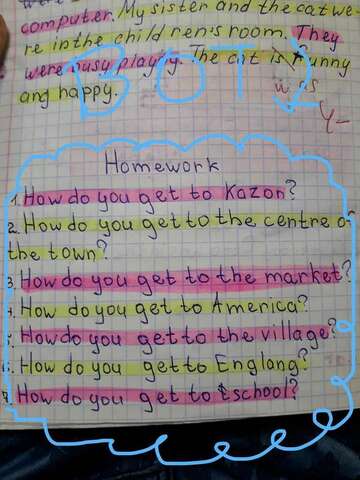 computer. My sister and the cat we-
re in the children's room. They
were busy playig. The cat is funny
ang happy.
was
ВОТ
Homework
1. How do you get to Kazon?
2. How do you get to the centre of
the town?
3. How do you get to the market?
4. How do you get to America?
How do you get to the village?
How do you get to Englang?
How do you get to school?